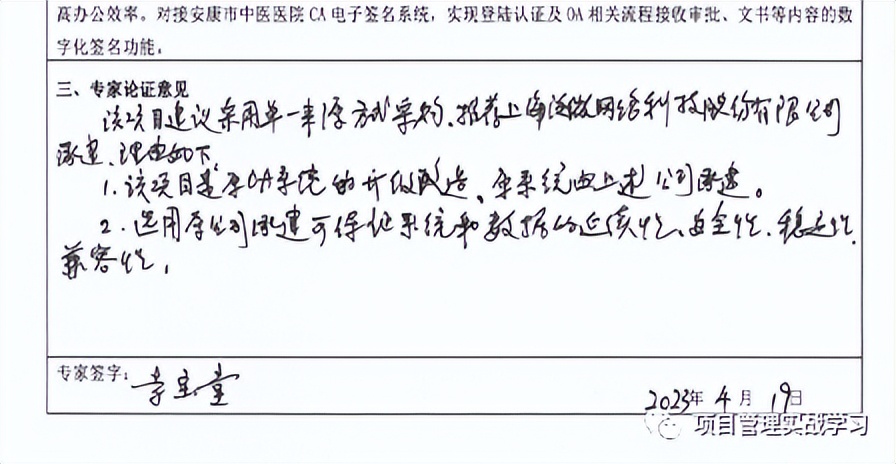 高办公效率。对接安康市中医医院CA电子签名系统，实现登陆认证及OA相关流程接收审批、文书等内容的数
字化签名功能。
三、专家论证意见
该项目建议采用单一来源方式采购、推荐上海泛微网络科技股份有限公司
承建、理由如下、
1.该项目是原OA系统的升级改造、原系统由上述公司承建。
2.选用原公司承建可保证系统和数据的延续性、安全性、稳定性、
兼容性，
专家签字：李宝堂
2023年4月19日
项目管理实战学习